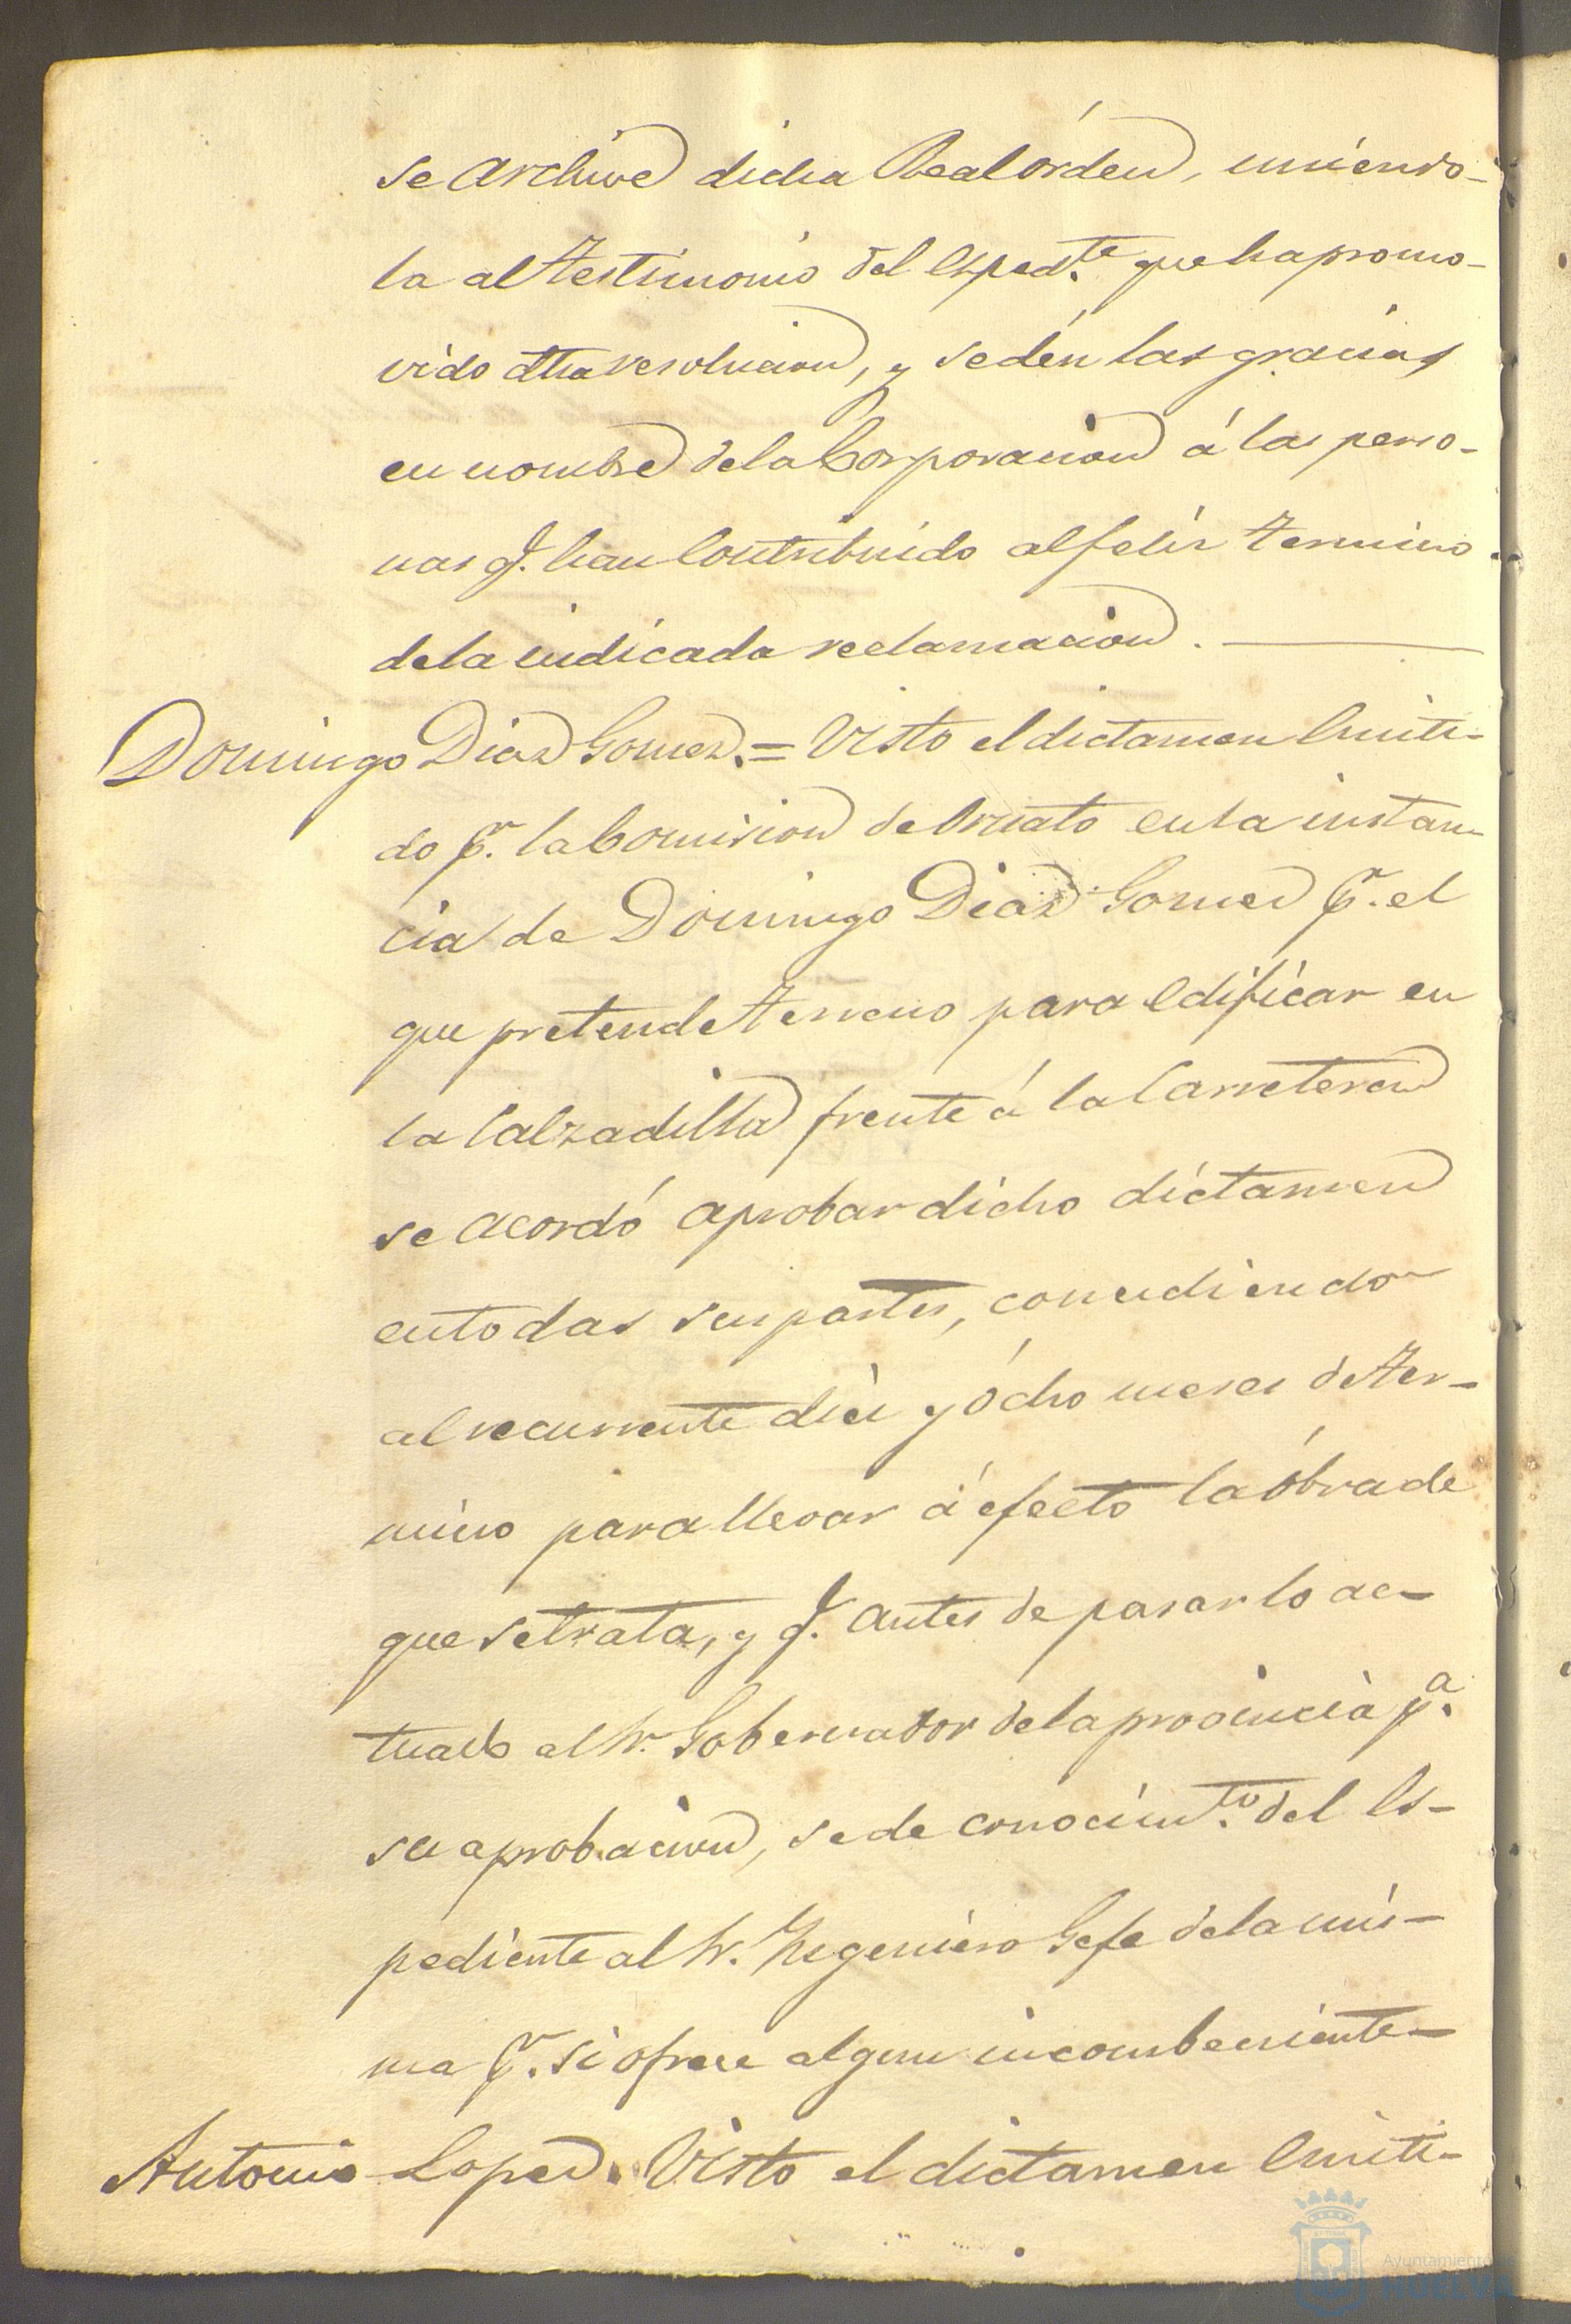 se archive dicha Real órden, uniendo-
la al testimonio del Exped.te que ha promo-
vido dha resolucion, y se dén las gracias
en nombre de la Corporacion á las perso-
nas q. han Contribuido al feliz termino
de la indicada reclamacion.
Domingo Diaz Gomez. = Visto el dictamen Emiti-
do p.r la Comision de Ornato en la instan-
cia de Domingo Diaz Gomez p.r el
que pretende terreno para Edificar en
la Calzadilla frente á la Carretera
se acordó aprobar dicho dictamen
en todas sus partes, concediendo
al recurrente diez y ócho meses de ter-
mino para llevar á efecto la óbra de
que se trata, y q. antes de pasar lo ac-
tuado al Sr. Gobernador de la provincia p.a
su aprobacion, se de conocim.to del Es-
pediente al Sr. Ingeniero Gefe de la mis-
ma p.r si ofrece algun incombeniente
Antonio Lopez. Visto el dictamen Emiti-
Ayuntamiento de
HUELVA